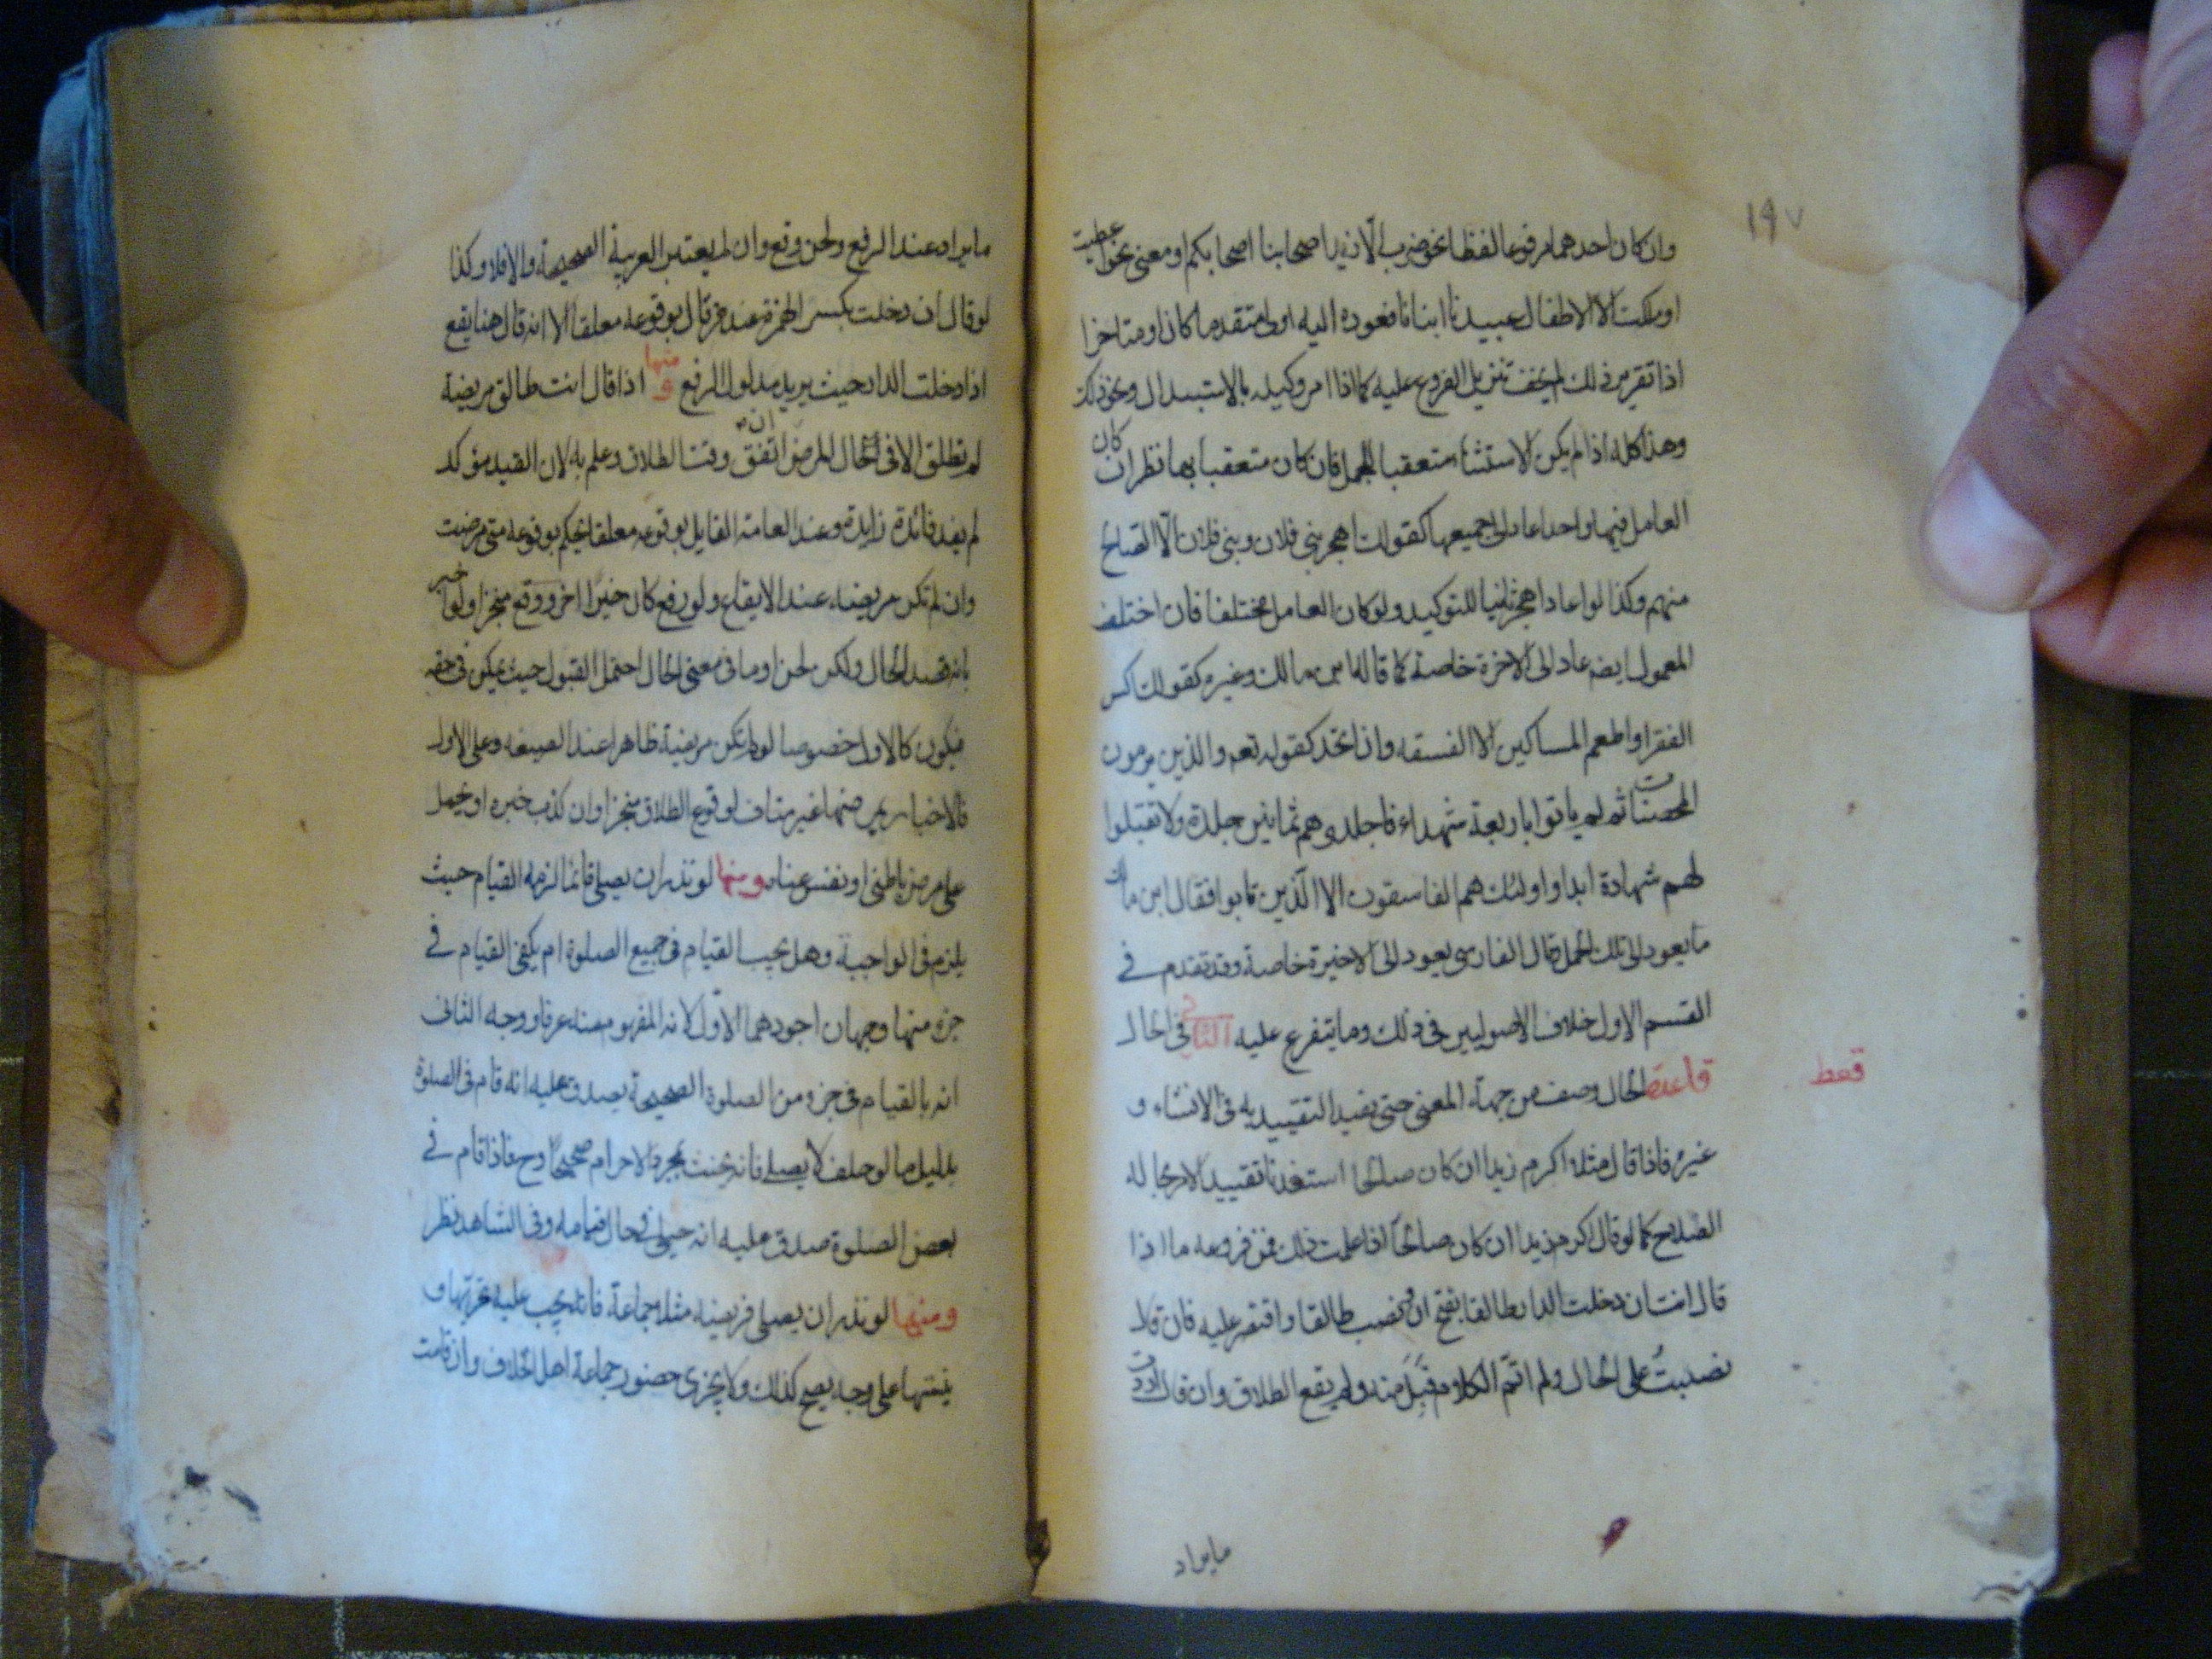 ١٩٧
وان كان احدهما مرفوعا لفظا نحو ضرب الا زيدا اصحابنا اصحابكم او معنى نحو اعطيت
او ملكت الا الاطفال عبيدنا ابنانا فعوده اليه اولى متقدما كان او متاخرا
اذا تقرر ذلك لم يخف تنزيل الفروع عليه كما اذا امر وكيله بالاستبدال ونحو ذلك
وهذا كله اذا لم يكن الاستثناء متعقبا للجمل فان كان متعقبا بها نظر ان كان
العامل فيها واحدا عاد الى جميعها كقولك اهجر بني فلان وبني فلان الا الصالح
منهم وكذا لو اعاد اهجر ثانيا للتوكيد ولو كان العامل مختلفا فان اختلف
المعمول ايضا عاد الى الاخرة خاصة كما قاله ابن مالك وغيره كقولك اكس
الفقرا واطعم المساكين الا الفسقه وان اتحد كقوله تعم والذين يرمون
المحصنات ثم لم ياتوا باربعة شهداء فاجلدوهم ثمانين جلدة ولا تقبلوا
لهم شهادة ابدا واولئك هم الفاسقون الا الذين تابوا فقال ابن مالك
ما يعود الى تلك الجمل وقال الفارسي يعود الى الاخيرة خاصة وقد تقدم في
القسم الاول خلاف الاصوليين في ذلك وما يتفرع عليه الثاني في الحال
قاعدة الحال وصف من جهة المعنى حتى يفيد التقييد به في الانشاء و
غيره فاذا قال مثلا اكرم زيدا ان كان صالحا استفدنا تقييد الامر بحالة
الصلاح كما لو قال اكرم زيدا ان كان صالحا اذا علمت ذلك فمن فروعه ما اذا
قال انت ان دخلت الدار طالقا بفتح ان ونصب طالقا واقتصر عليه فان قال
نصبت على الحال ولم اتم الكلام قبل منه ولم يقع الطلاق وان قال اردت
مايراد
ما يراد عند الرفع ولحن وقع وان لم يعتبر العربية الصحيحة والا فلا وكذا
لو قال ان دخلت بكسر الهمزة عند من قال بوقوعه معلقا الا انه قال هنا يقع
اذا دخلت الدار حيث يريد مدلول الرفع ومنها اذا قال انت طالق مريضة
لم تطلق الا في الحال المرض ان اتفق وقت الطلاق وعلم به لان القيد مؤكد
لم يفد فائدة زايدة وعند العامة القايل بوقوعه معلقا يحكم بوقوعه متى مرضت
وان لم تكن مريضة عند الايقاع ولو رفع كان خبرا اخر ووقع منجزا ولو اخبر
بانه قصد الحال ولكن لحن او ما في معنى الحال احتمل القبول حيث يمكن في حقه
فيكون كالاول خصوصا لو لم تكن مريضة ظاهرا عند الصيغه وعلى الاول
فالاخبار بمرضها غير مناف لوقوع الطلاق منجزا وان كذب خبره او يحمل
على مرض باطني او نفسر عناه ومنها لو نذر ان يصلي قائما لزمه القيام حيث
يلزم في الواجبة وهل يجب القيام في جميع الصلوة ام يكفي القيام في
جزء منها وجهان اجودهما الاول لانه المفهوم منه عرفا ووجه الثاني
انه بالقيام في جزء من الصلوة الصحيحة يصدق عليه انه قام في الصلوة
بدليل ما لو حلف لا يصلي فانه يحنث بمجرد الاحرام صحيحا وح فاذا قام في
بعض الصلوة صدق عليه انه صلى في حال قيامه وفي الشاهد نظر
ومنها لو نذر ان يصلي فريضة مثلا جماعة فانه يجب عليه تحريها و
نيتها على وجه يصح كذلك ولا يجزى حضور جماعة اهل الخلاف وان قامت